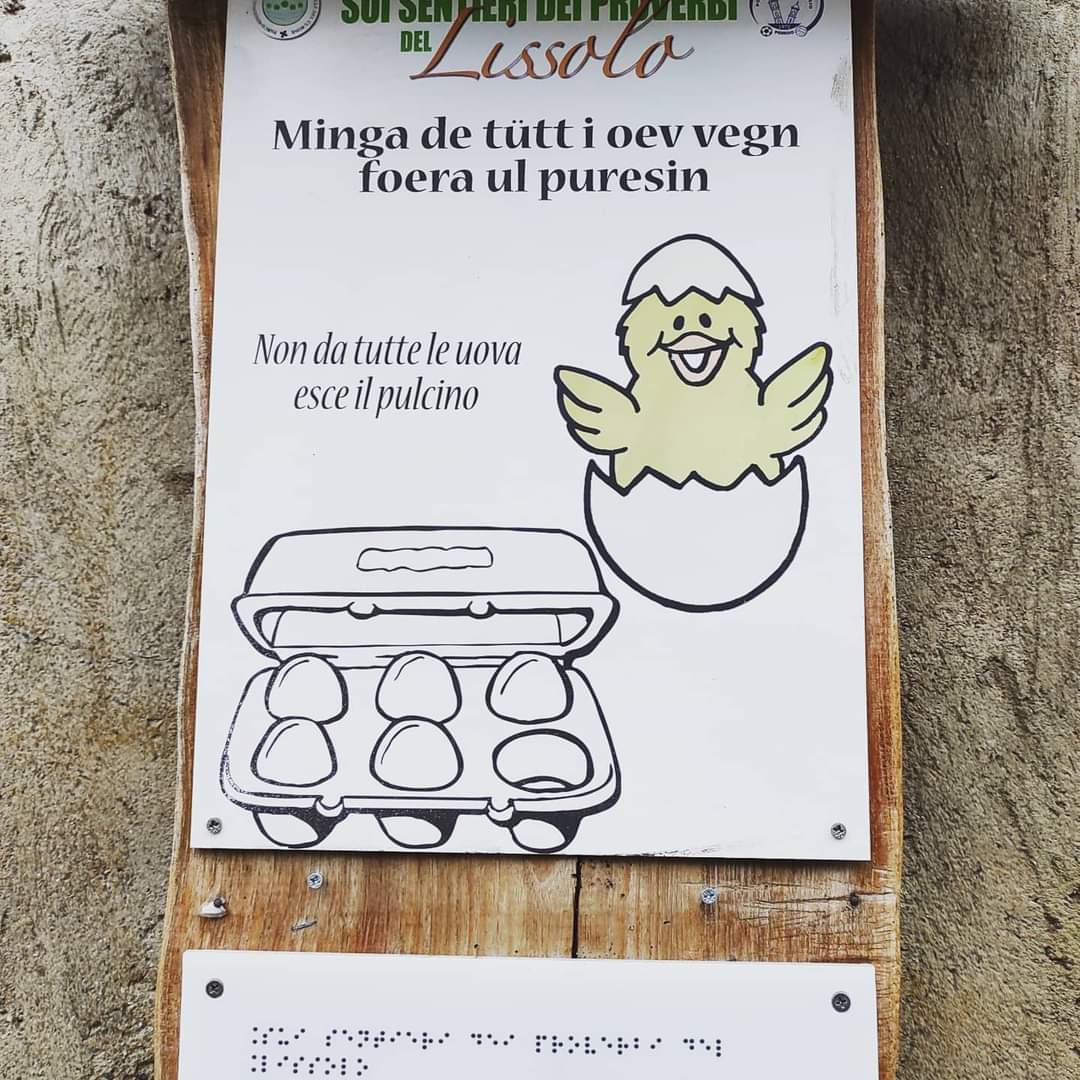 SUI SENTIERI DEI PROVERBI
DEL Lissolo
Minga de tütt i oev vegn
foera ul puresin
Non da tutte le uova
esce il pulcino
⠨⠎⠥⠊ ⠎⠑⠝⠞⠊⠑⠗⠊ ⠙⠑⠊ ⠏⠗⠕⠧⠑⠗⠃⠊ ⠙⠑⠇
⠨⠇⠊⠎⠎⠕⠇⠕